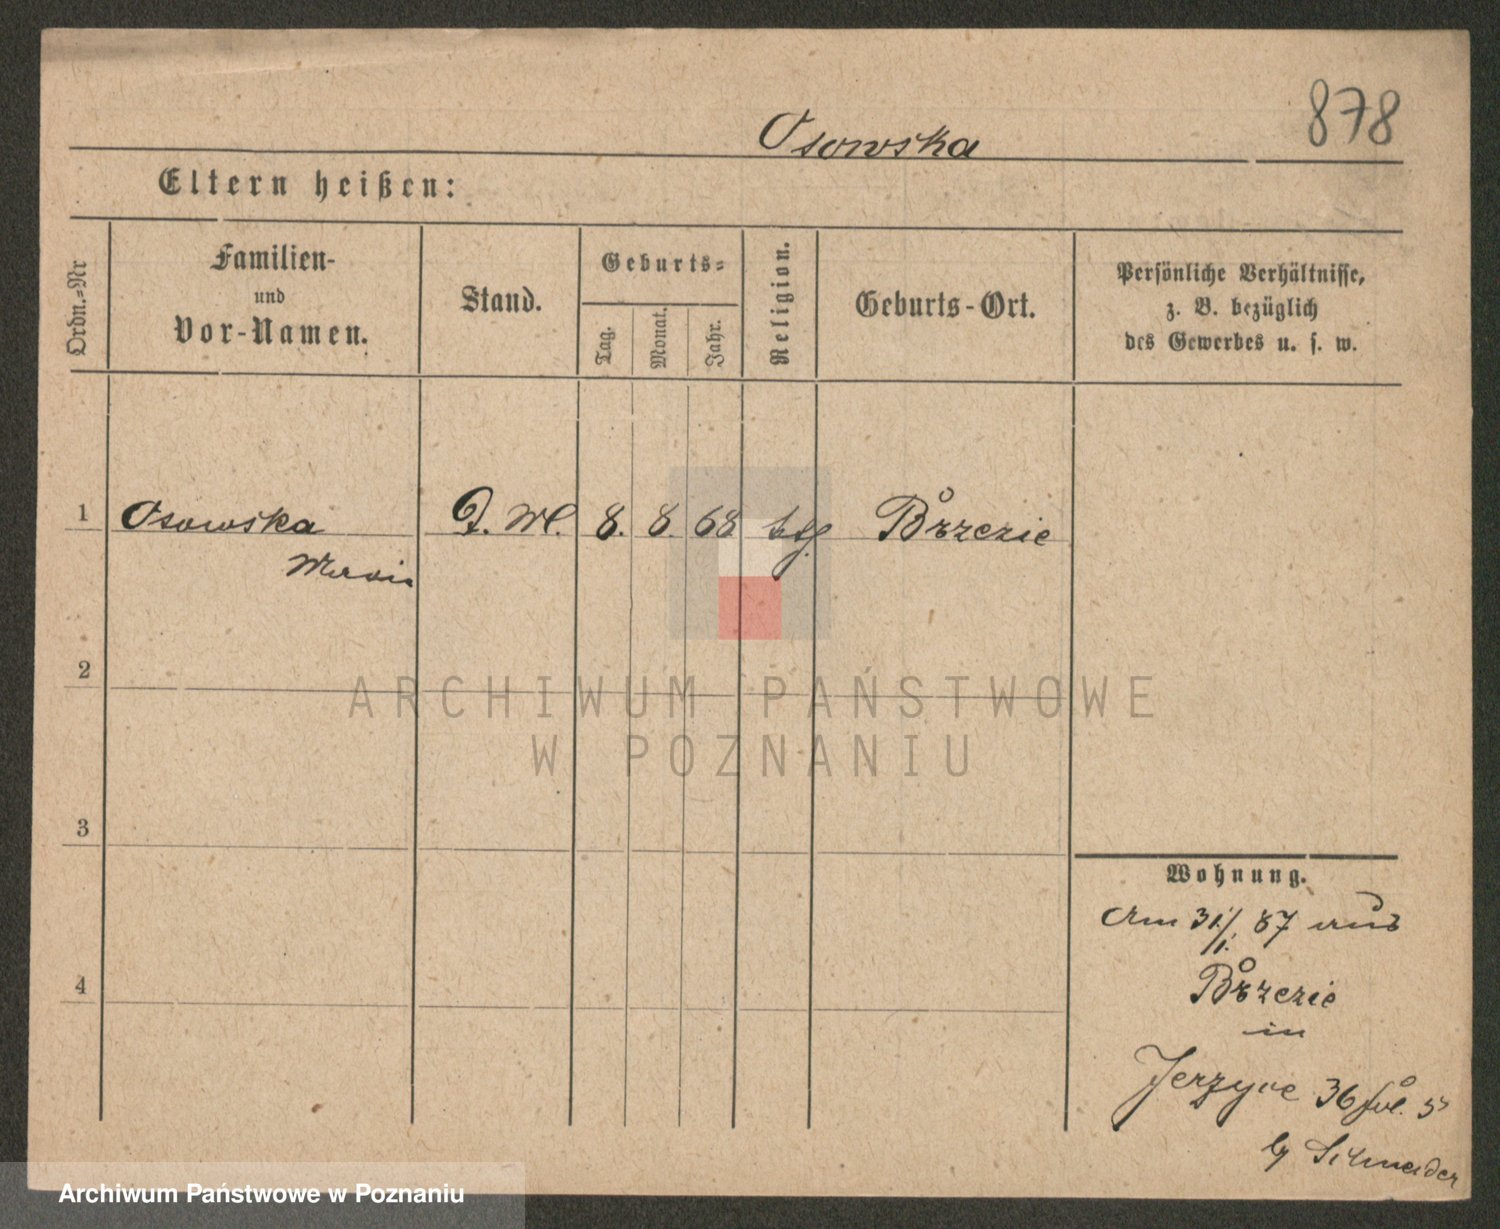 878
Osowska
Eltern heißen:
Ordn.=Nr
Familien-
und
Vor-Namen.
Stand.
Geburts=
Tag.
Monat.
Jahr.
Religion.
Geburts-Ort.
Persönliche Verhältnisse,
z. B. bezüglich
des Gewerbes u. s. w.
1 Osowska D. M. 8. 8. 68 ktl. Brzezie
Marie
2
3
4
ARCHIWUM PAŃSTWOWE
W POZNANIU
Wohnung.
Am 31./1. 87 aus
Brzezie
in
Jerzyce 36
by Schneider
Archiwum Państwowe w Poznaniu